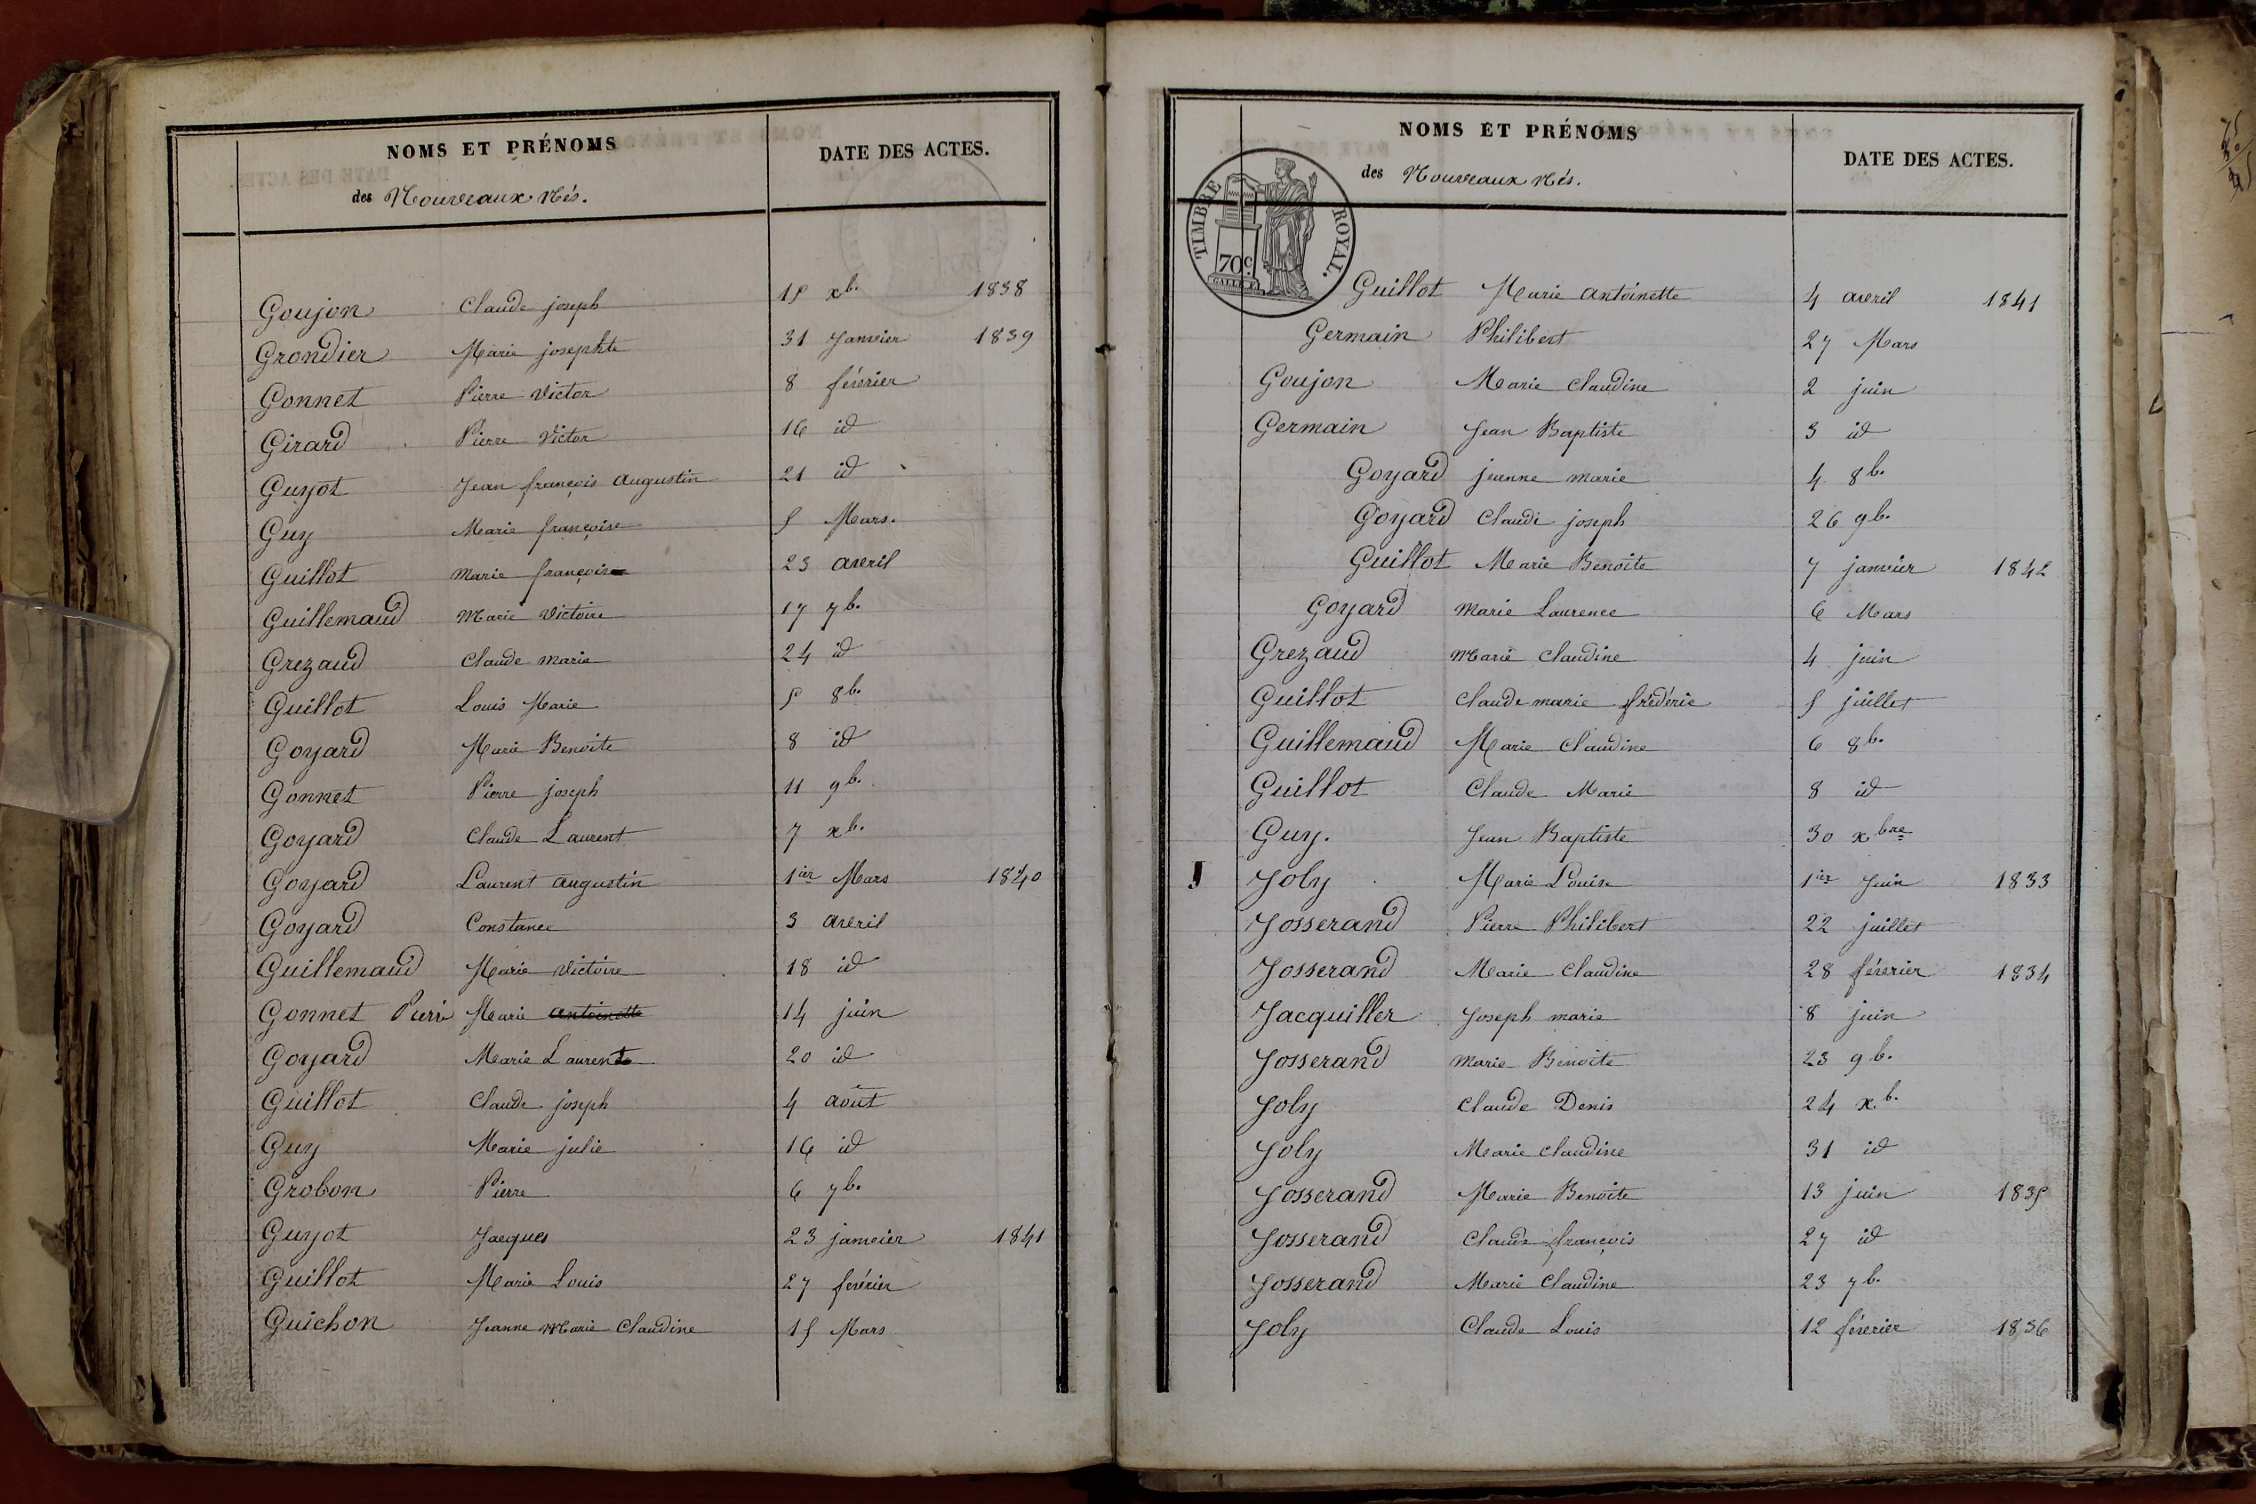 NOMS ET PRÉNOMS
des Nouveaux Nés.
DATE DES ACTES.
Goujon Claude joseph 15 xb. 1838
Grondier Marie josephte 31 Janvier 1839
Gonnet Pierre Victor 8 février
Girard Pierre Victor 16 id
Guyot Jean françois Augustin 21 id
Guy Marie françoise 5 Mars.
Guillot Marie françoise 23 avril
Guillemaud Marie Victoire 17 7b.
Grezaud Claude Marie 24 id
Guillot Louis Marie 5 8b.
Goyard Marie Benoite 8 id
Gonnet Pierre joseph 11 9b.
Goyard Claude Laurent 7 xb.
Goyard Laurent Augustin 1er Mars 1840
Goyard Constance 3 avril
Guillemaud Marie Victoire 18 id
Gonnet Pierre Marie Antoinette 14 juin
Goyard Marie Laurent 20 id
Guillot Claude joseph 4 août
Guy Marie julie 16 id
Grobon Pierre 6 7b.
Guyot Jacques 23 janvier 1841
Guillot Marie Louis 27 février
Guichon Jeanne Marie Claudine 15 Mars
NOMS ET PRÉNOMS
des Nouveaux Nés.
DATE DES ACTES.
TIMBRE ROYAL.
70c.
Guillot Marie Antoinette 4 avril 1841
Germain Philibert 27 Mars
Goujon Marie Claudine 2 juin
Germain Jean Baptiste 3 id
Goyard jeanne marie 4 8b.
Goyard Claude joseph 26 9b.
Guillot Marie Benoite 7 janvier 1842
Goyard Marie Laurence 6 Mars
Grezaud Marie Claudine 4 juin
Guillot Claude marie frédéric 5 juillet
Guillemaud Marie Claudine 6 8b.
Guillot Claude Marie 8 id
Guy. Jean Baptiste 30 xbre
J Joly Marie Louise 1ier Juin 1833
Josserand Pierre Philibert 22 juillet
Josserand Marie Claudine 28 février 1834
Jacquiller Joseph marie 8 juin
Josserand Marie Benoite 23 9b.
Joly Claude Denis 24 xb.
Joly Marie Claudine 31 id
Josserand Marie Benoite 13 juin 1835
Josserand Claude françois 27 id
Josserand Marie Claudine 23 7b.
Joly Claude Louis 12 février 1836